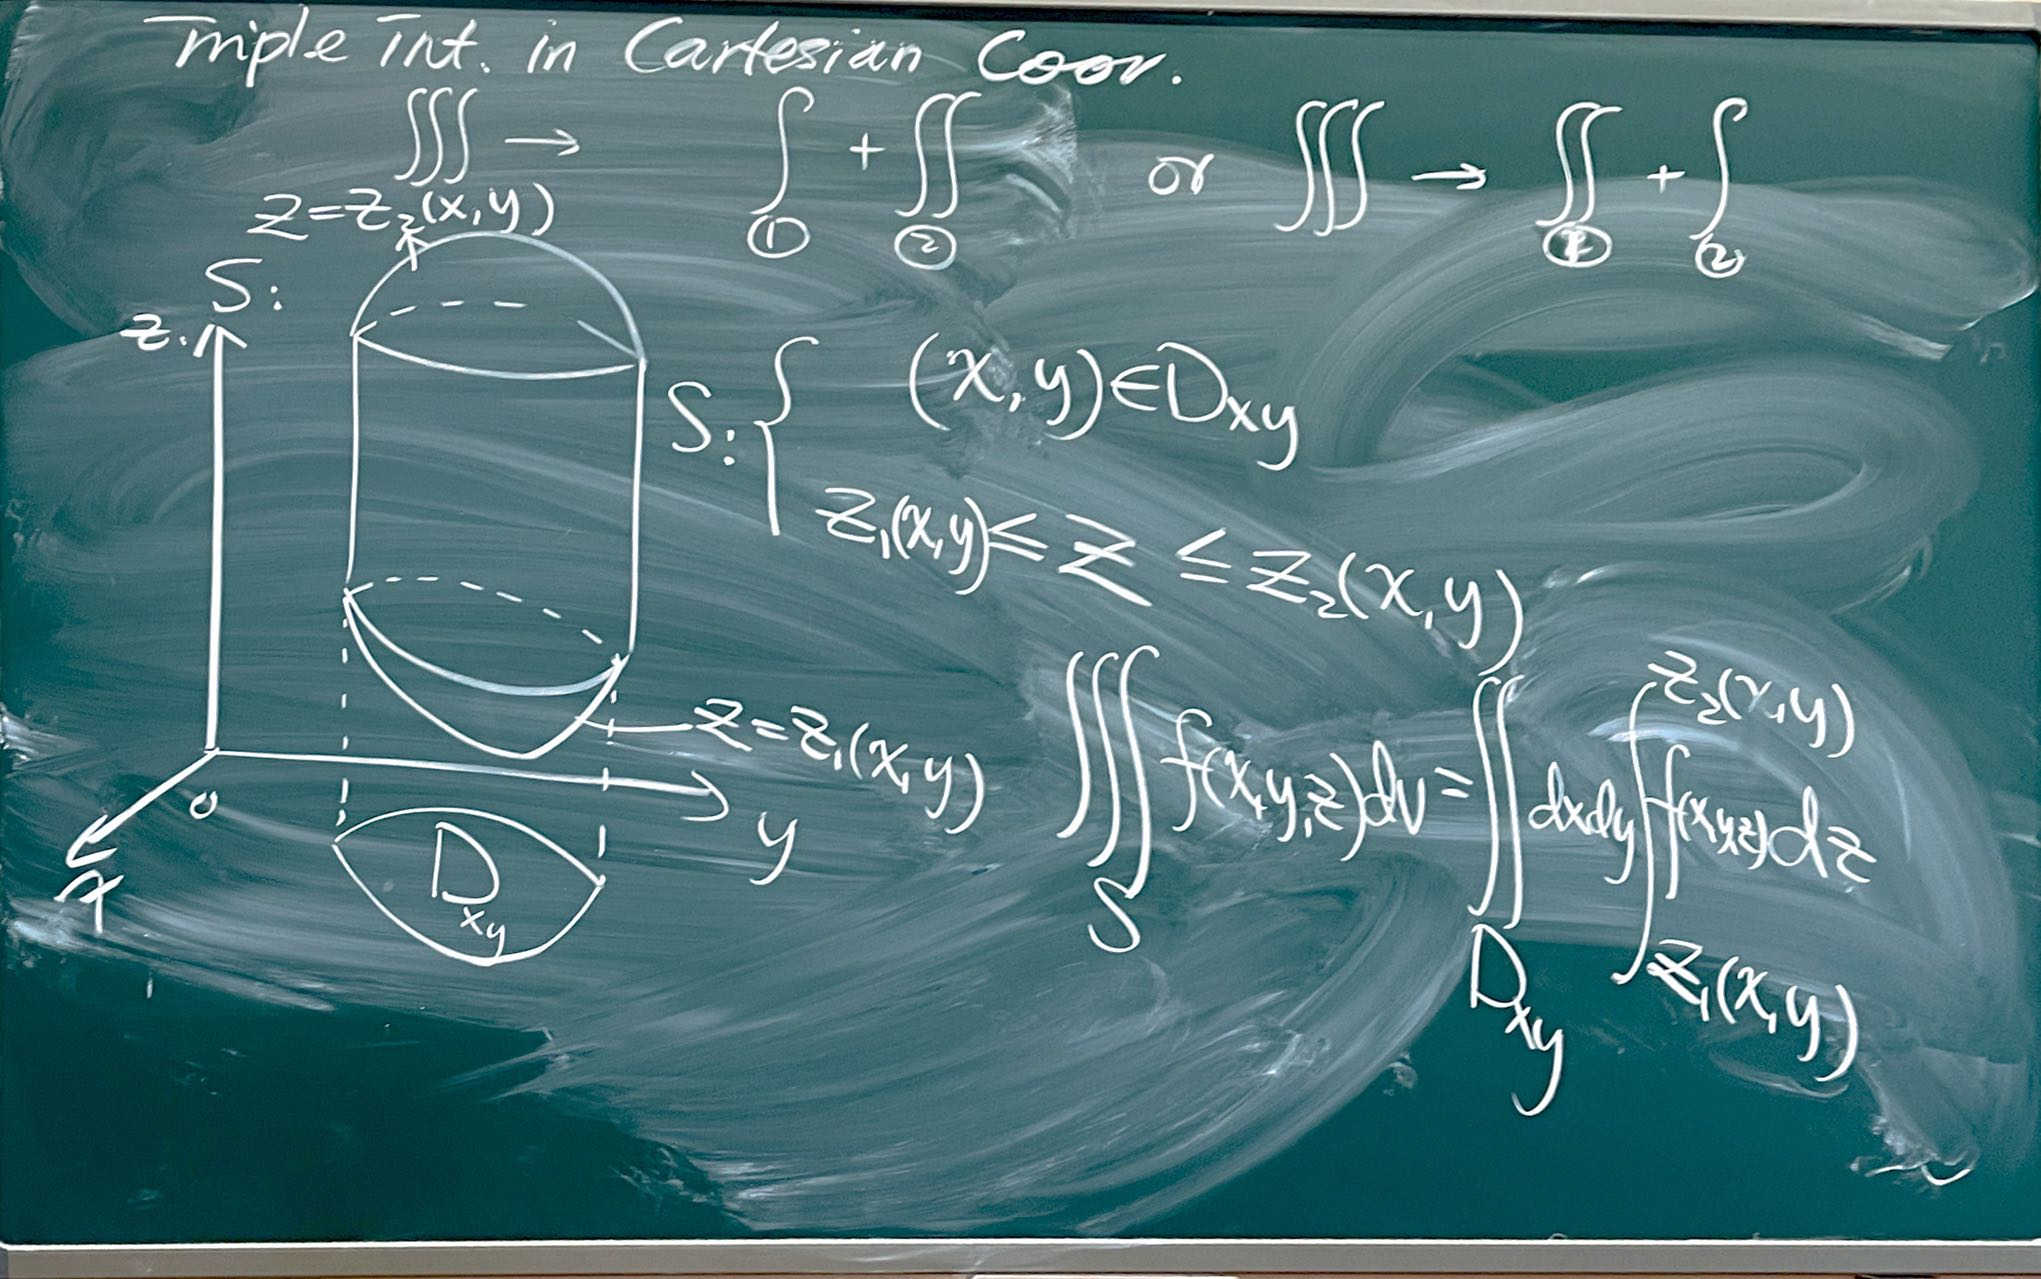 Triple Int. in Cartesian Coor.
∭ → ∫ + ∬ or ∭ → ∬ + ∫
① ② ① ②
z=z₂(x,y)
S:
z
S: { (x,y)∈Dxy
z₁(x,y)≤z≤z₂(x,y)
z=z₁(x,y)
o
y
x
Dxy
∭ f(x,y,z)dv=∬ dxdy ∫ f(x,y,z)dz
S Dxy z₁(x,y) z₂(x,y)